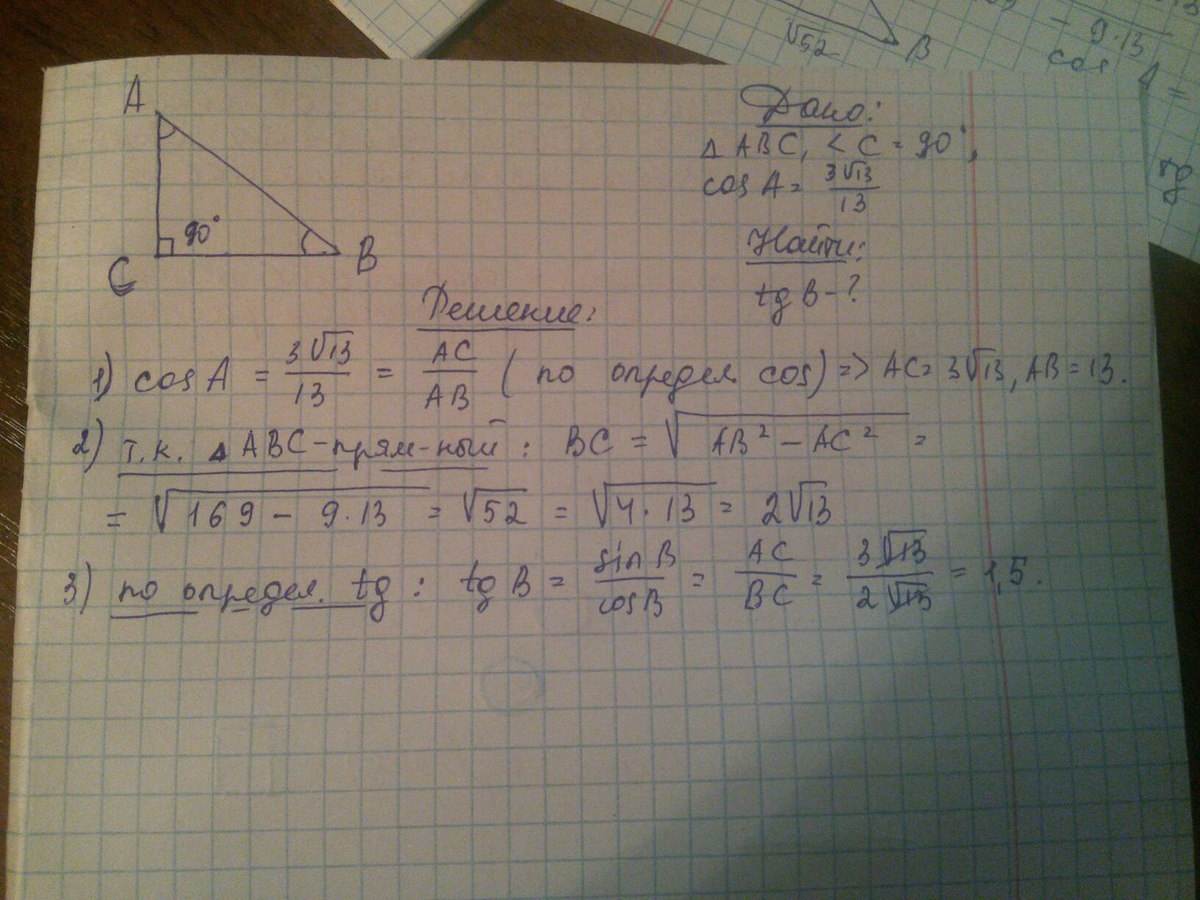 √52 B
- 9·13
cos A =
tg
A
90°
C
B
Дано:
△ ABC, < C = 90°,
cos A = 3√13/13
Найти:
tg B - ?
Решение:
1) cos A = 3√13/13 = AC/AB ( по определ. cos) => AC = 3√13, AB = 13.
2) т.к. △ ABC - прям-ный : BC = √AB² - AC² =
= √169 - 9·13 = √52 = √4·13 = 2√13
3) по определ. tg : tg B = sin B/cos B = AC/BC = 3√13/2√13 = 1,5.